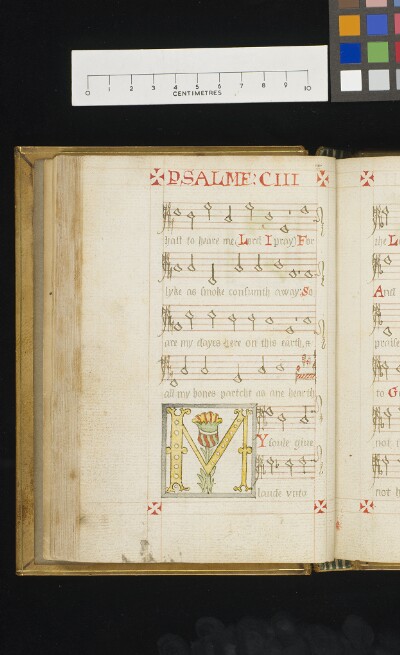 0 1 2 3 4 5 6 7 8 9 10
CENTIMETRES
PSALME: CIII
hast to heare me Lord I pray) For
lyke as smoke consumth away: So
are my dayes here on this earth, &
all my bones partcht as one hearth
M
Y soule giue
laude vnto
the L
And
praise
to G
not
not h